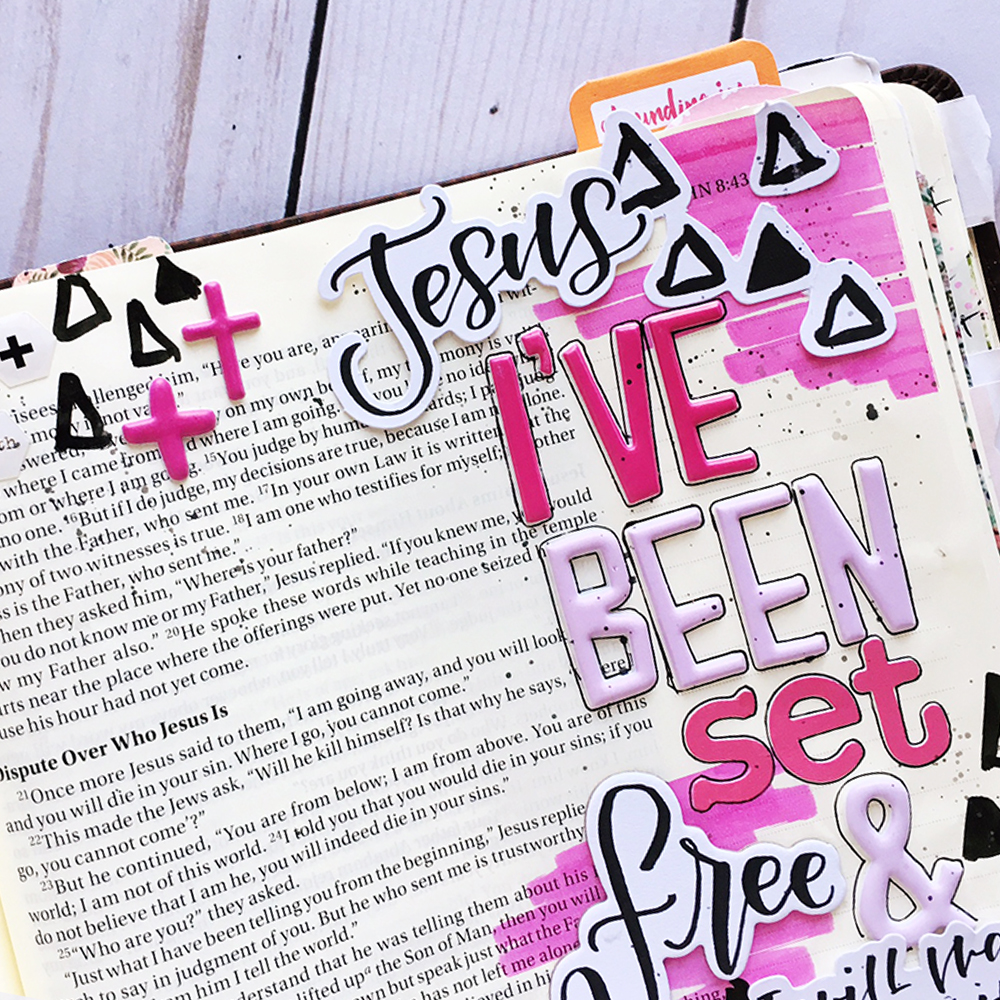 IN 8:43
Jesus
I'VE
BEEN
set
free &
will
isees challenged him, "Here you are,
where I came from where I am going. ¹⁵You judge by
or where I am going. ¹⁵You judge by human
no one. ¹⁶But if I do judge, my decisions are true, because I am not alone.
with the Father, who sent me. ¹⁷In your own Law it is written that the
ony of two witnesses is true. ¹⁸I am one who testifies for myself; other
s is the Father, who sent me."
hen they asked him, "Where is your father?"
ou do not know me or my Father," Jesus replied. "If you knew me, you would
w my Father also." ²⁰He spoke these words while teaching in the temple
rts near the place where the offerings were put. Yet no one seized
use his hour had not yet come.
Dispute Over Who Jesus Is
²¹Once more Jesus said to them, "I am going away, and you will look
and you will die in your sin. Where I go, you cannot come."
²²This made the Jews ask, "Will he kill himself? Is that why he says,
go, you cannot come'?"
²³But he continued, "You are from below; I am from above. You are of this
world; I am not of this world. ²⁴I told you that you would die in your sins; if you
do not believe that I am he, you will indeed die in your sins."
²⁵"Who are you?" they asked.
"Just what I have been telling you from the beginning," Jesus replie
to say in judgment of you. But he who sent me is trustworthy
him I tell the world."
understand that he was telling them about his
lifted upᵃ the Son of Man, then you will
own but speak just what the Fa
has not left me alone